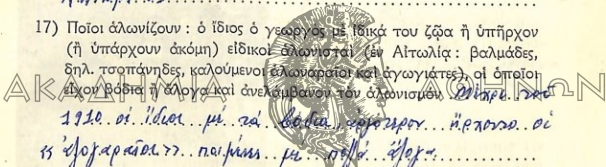 17) Ποῖοι ἁλωνίζουν : ὁ ἴδιος ὁ γεωργὸς μὲ ἰδικά του ζῷα ἢ ὑπῆρχον
(ἢ ὑπάρχουν ἀκόμη) εἰδικοὶ ἁλωνισταὶ (ἐν Αἰτωλίᾳ : βαλμάδες,
δηλ. τσοπάνηδες, καλούμενοι ἁλωναραῖοι καὶ ἀγωγιάτες), οἱ ὁποῖοι
εἶχον βόδια ἢ ἄλογα καὶ ἀνελάμβανον τὸν ἁλωνισμόν. Μέχρι τοῦ
1910 οἱ ἴδιοι μὲ τὰ βόδια ἀργότερον ἤρχοντο οἱ
"ἀλογαραῖοι" ποιμένες μὲ πολλὰ ἄλογα.
ΑΚΑΔΗΜΙΑ ΑΘΗΝΩΝ